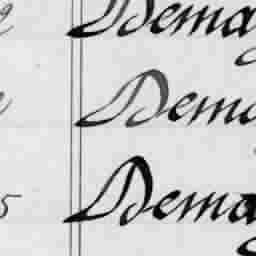 Demag
Dema
5 Demag